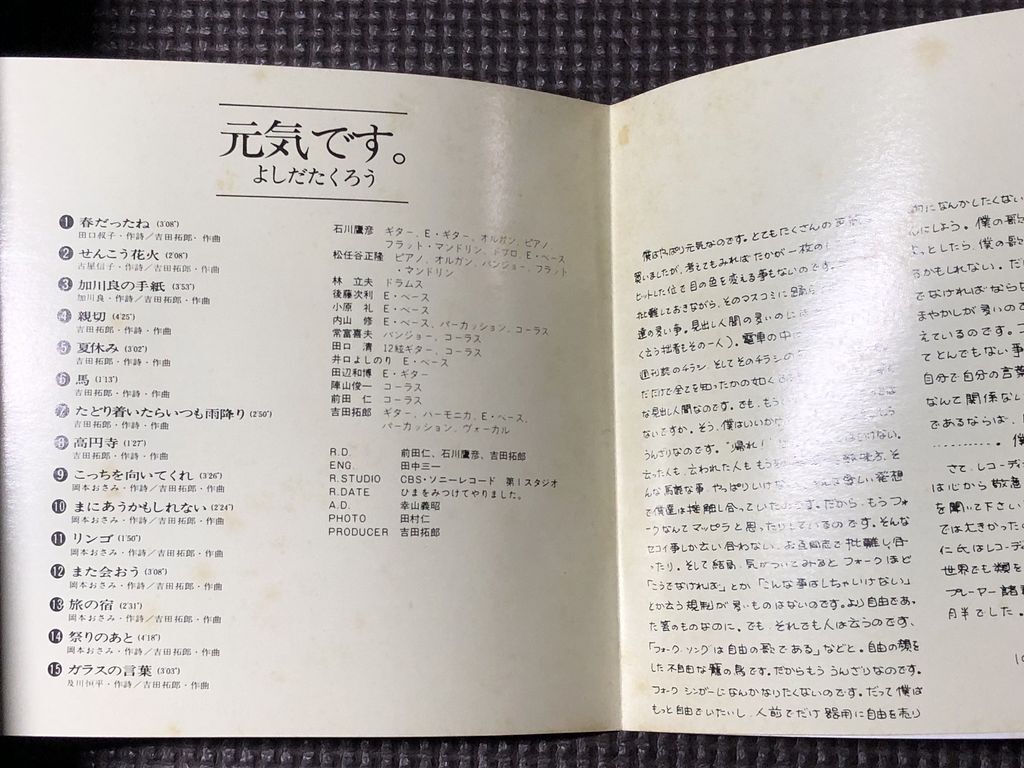 元気です。
よしだたくろう
1 春だったね (3'08")
田口叔子・作詩／吉田拓郎・作曲
2 せんこう花火 (2'08")
古屋信子・作詩／吉田拓郎・作曲
3 加川良の手紙 (3'53")
加川良・作詩／吉田拓郎・作曲
4 親切 (4'25")
吉田拓郎・作詩・作曲
5 夏休み (3'02")
吉田拓郎・作詩・作曲
6 馬 (1'13")
吉田拓郎・作詩・作曲
7 たどり着いたらいつも雨降り (2'50")
吉田拓郎・作詩・作曲
8 高円寺 (1'27")
吉田拓郎・作詩・作曲
9 こっちを向いてくれ (3'26")
岡本おさみ・作詩／吉田拓郎・作曲
10 まにあうかもしれない (2'24")
岡本おさみ・作詩／吉田拓郎・作曲
11 リンゴ (1'50")
岡本おさみ・作詩／吉田拓郎・作曲
12 また会おう (3'08")
岡本おさみ・作詩／吉田拓郎・作曲
13 旅の宿 (2'31")
岡本おさみ・作詩／吉田拓郎・作曲
14 祭りのあと (4'18")
岡本おさみ・作詩／吉田拓郎・作曲
15 ガラスの言葉 (3'03")
及川恒平・作詩／吉田拓郎・作曲
石川鷹彦 ギター、E・ギター、オルガン、ピアノ
フラット・マンドリン、ドブロ、E・ベース
松任谷正隆 ピアノ、オルガン、バンジョー、フラット
・マンドリン
林 立夫 ドラムス
後藤次利 E・ベース
小原 礼 E・ベース
内山 修 E・ベース、パーカッション、コーラス
常富喜夫 バンジョー、コーラス
田口 清 12絃ギター、コーラス
井口よしのり E・ベース
田辺和博 E・ギター
陣山俊一 コーラス
前田 仁 コーラス
吉田拓郎 ギター、ハーモニカ、E・ベース、
パーカッション、ヴォーカル
R.D. 前田仁、石川鷹彦、吉田拓郎
ENG. 田中三一
R.STUDIO CBS・ソニーレコード 第1スタジオ
R.DATE ひまをみつけてやりました。
A.D. 幸山義昭
PHOTO 田村仁
PRODUCER 吉田拓郎
僕はやっぱり元気なのです。とてもたくさんの
買いましたが、考えてもみればたかが一枚の
ヒットした位で目の色を変える事もないのです。
批難しておきながら、そのマスコミに
達の多い事。見出し人間の多いのには
く云う拙者もその一人）。電車の中
週刊誌のチラシ、そしてそのチラシの
だだけで全てを知ったかの如く
な見出し人間なのです。でも、もう
ないですか。そう、僕はいいか
うんざりなのです。"帰れ！
云った人も、云われた人も
んな馬鹿な事、やっぱりいけな 発想
で僕達は接触し合っていたようす。だから、もうフォ
ークなんてマッピラと思ったりしているのです。そんな
セコイ事しか云い合わない、お互同志で批難し合っ
たり。そして結局、気がついてみるとフォークほど
「こうでなければ」とか「こんな事はしちゃいけない」
とか云う規制が多いものはないのです。より自由であっ
た筈のものなのに。でも、それでも人は云うのです、
「フォーク・ソングは自由の歌である」などと。自由の顔を
した不自由な籠の鳥です。だからもう うんざりなのです。
フォーク シンガーになんかなりたくないのです。だって僕は
もっと自由でいたいし、人前でだけ器用に自由を売り
になんかしたくない
にしよう。僕の歌
よ、としたら、僕の歌
るかもしれない。だ
でなければならな
まやかしが多いので
えているのです。フ
てとんでもない事
自分で自分の言葉
なんて関係ない
であるならば、
………… 。僕
さて、レコーデ
は心から敬意
を聞いて下さい
では大きかった
仁氏はレコーデ
世界でも類を
プレーヤー諸
月半でした。